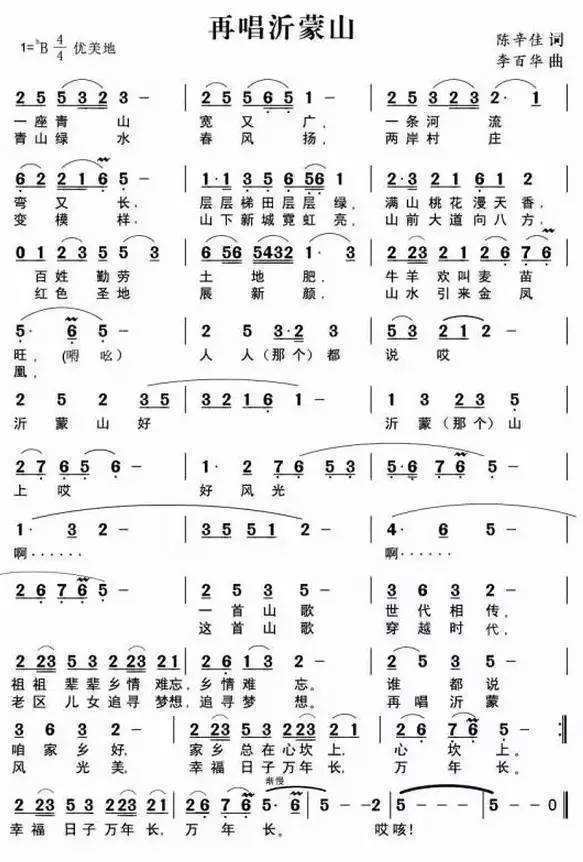 再唱沂蒙山
1=♭B 4/4 优美地
陈辛佳 词
李百华 曲
2 5 5 3 2 3 - | 2 5 5 6 5 1 - | 2 5 3 2 3 2 · 1 |
一座青山 宽又广, 一条河流
青山绿水 春风扬, 两岸村庄
6 2 2 1 6 5 - | 1·1 3 5 6 5 6 1 | 3·2 3 2 1 6 1 2 |
弯又长, 层层梯田层层绿, 满山桃花漫天香,
变模样, 山下新城霓虹亮, 山前大道向八方,
0 1 2 3 5 5 3 | 6 5 6 5 4 3 2 1 - | 2 2 3 2 1 2 6 7 6 |
百姓勤劳 土地肥, 牛羊欢叫麦苗
红色圣地 展新颜, 山水引来金凤
5· 6 5 - | 2 5 3·2 3 | 5 3 2 1 2 - |
旺, (嗬吆) 人人(那个)都 说哎
凰,
2 5 2 3 5 | 3 2 1 6 1 - | 1 3 2 3 5 |
沂蒙山好 沂蒙(那个)山
2 7 6 5 6 - | 1· 2 7 6 5 3 | 5·6 7 6 5 - |
上哎 好风光
1· 3 2 - | 3 5 5 1 2 - | 4· 6 5 - |
啊…… 啊……
2 6 7 6 5 - | 2 5 3 5 | 3 6 3 2 |
一首山歌 世代相传,
这首山歌 穿越时代,
2 2 3 5 3 2 2 3 2 1 | 6 1 3 2 - | 2 5 3 5 |
祖祖辈辈乡情难忘,乡情难忘。 谁都说
老区儿女追寻梦想,追寻梦想。 再唱沂蒙
3 6 3 2 - | 2 2 3 5 3 2 2 3 1 | 2 6 7 6 5 - :‖
咱家乡好, 家乡总在心坎上, 心坎上。
风光美, 幸福日子万年长, 万年长。
渐慢
2 2 3 5 3 2 2 3 1 | 2 6 7 6 5· 6 | 5 - 2 | 5 - - - | 5 - - 0 ‖
幸福日子万年长, 万年长。 哎咳!